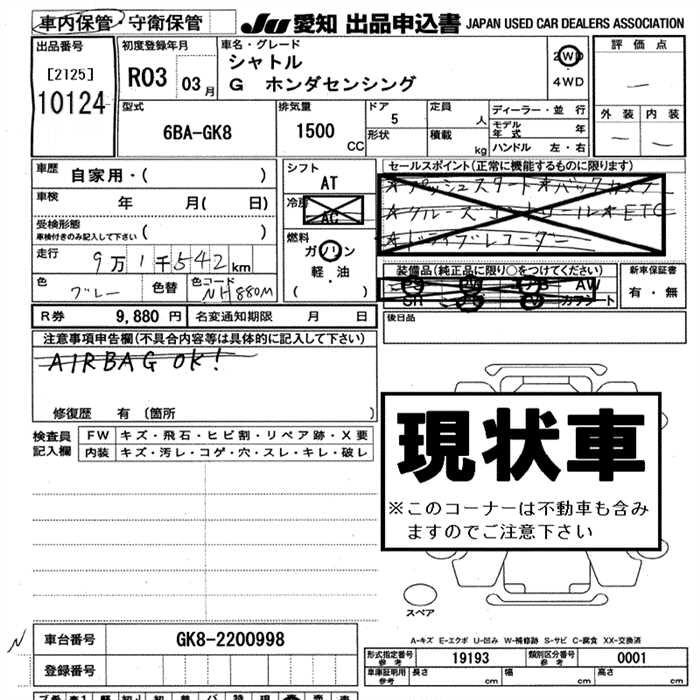 車内保管・守衛保管
JU 愛知 出品申込書 JAPAN USED CAR DEALERS ASSOCIATION
出品番号
[2125]
10124
初度登録年月
R03 03月
車名・グレード
シャトル
G ホンダセンシング
2WD
・
4WD
評価点
—
外装 内装
— —
型式
6BA-GK8
排気量
1500 CC
ドア
5
形状
定員
人
積載
kg
ディーラー・並行
モデル
年式 年
ハンドル 左・右
車歴
自家用・( )
車検
年 月( 日)
受検形態
車検付きのみ記入して下さい ( )
走行
9万1千542km
色
ブルー
色替
色コード
NH880M
シフト
AT
冷房
AC
燃料
ガソリン
軽・油
( )
セールスポイント(正常に機能するものに限ります)
*プッシュスタート*バックカメラ
*クルーズコントロール*ETC
*ドライブレコーダー
装備品(純正品に限り○をつけてください)
PS PW AB AW
SR カワ TV カラシート
新車保証書
有・無
R券 9,880円
名変通知期限 月 日
後日品
注意事項申告欄(不具合内容等は具体的に記入して下さい)
AIRBAG OK!
修復歴 有 (箇所 )
検査員
記入欄
FW キズ・飛石・ヒビ割・リペア跡・X要
内装 キズ・汚レ・コゲ・穴・スレ・キレ・破レ
現状車
※このコーナーは不動車も含み
ますのでご注意下さい
スペア
A-キズ E-エクボ U-凹み W-補修跡 S-サビ C-腐食 XX-交換済
N
車台番号 GK8-2200998
登録番号
形式指定番号
参考
19193
類別区分番号
参考
0001
車庫証明用
参考
長さ cm 幅 cm 高さ cm